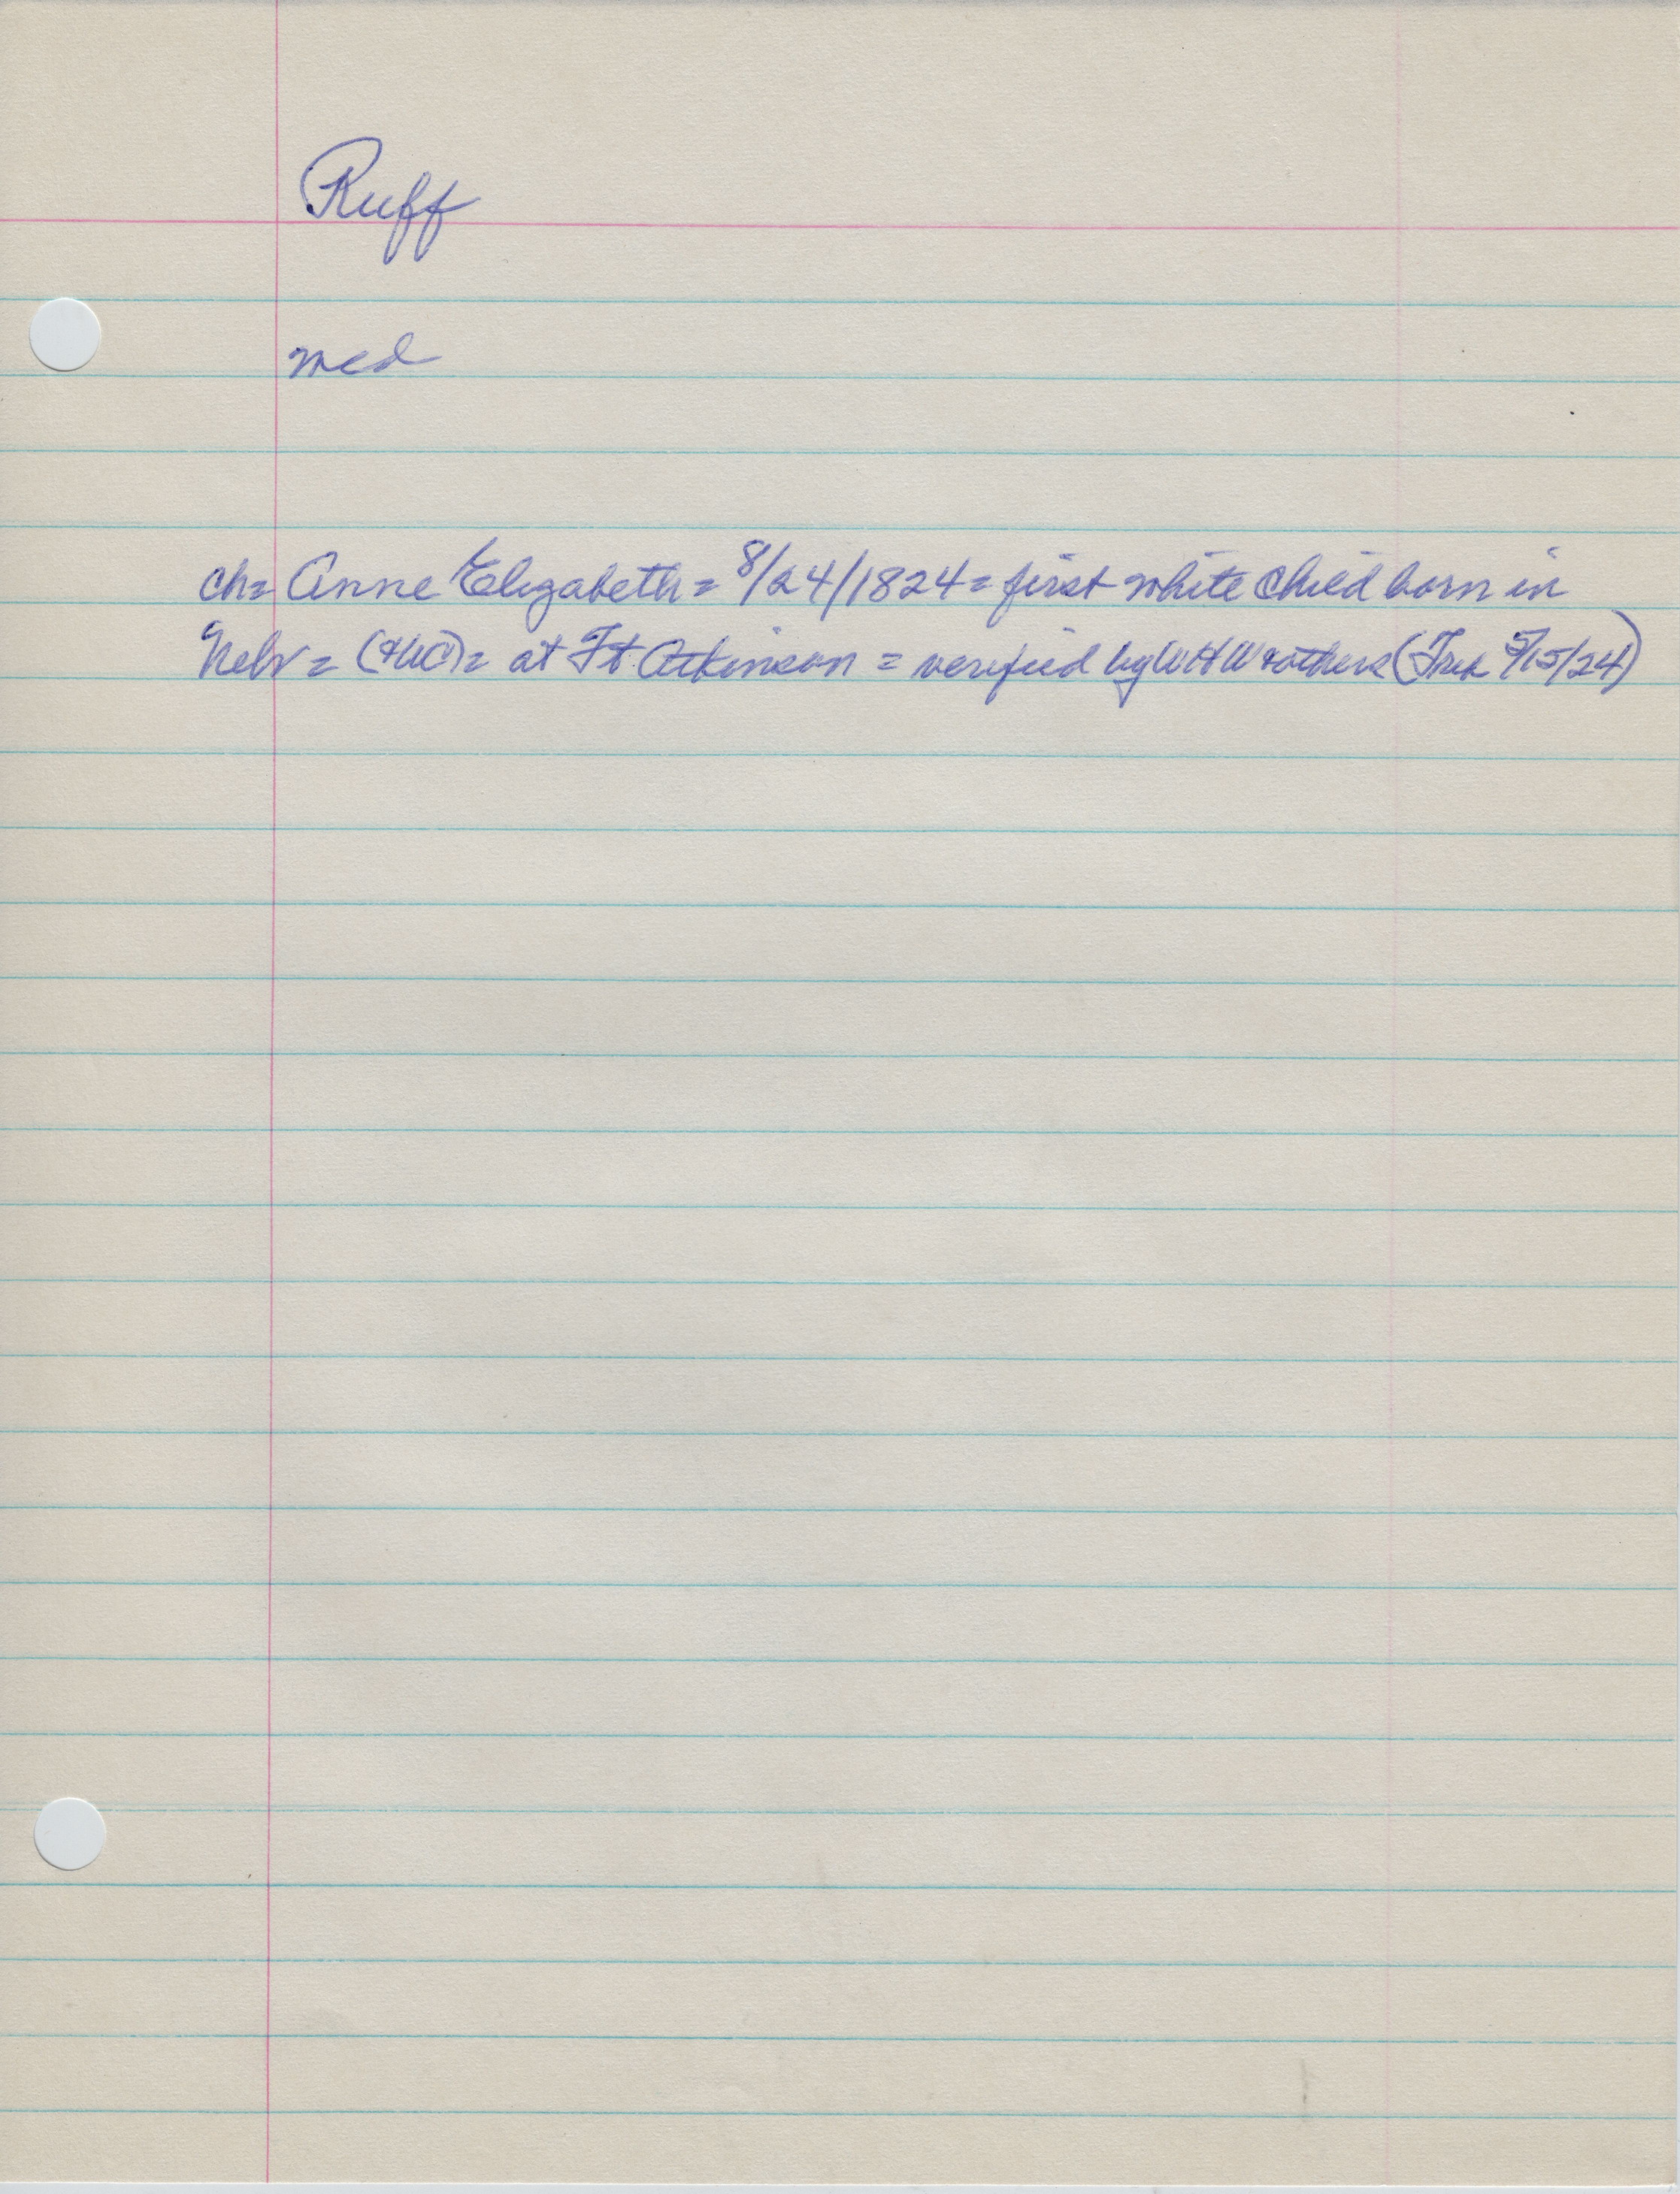 Ruff
med
ch= Anne Elizabeth = 8/24/1824 = first white child born in
Nebr = (+WC) = at Ft. Atkinson = verified by WHW + others (Trib 5/15/24)